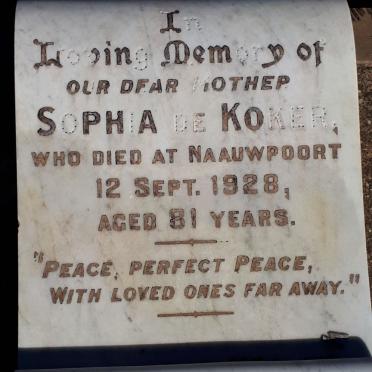 In
Loving Memory of
OUR DEAR MOTHER
SOPHIA DE KOKER,
WHO DIED AT NAAUWPOORT
12 SEPT. 1928,
AGED 81 YEARS.
"PEACE, PERFECT PEACE,
WITH LOVED ONES FAR AWAY."